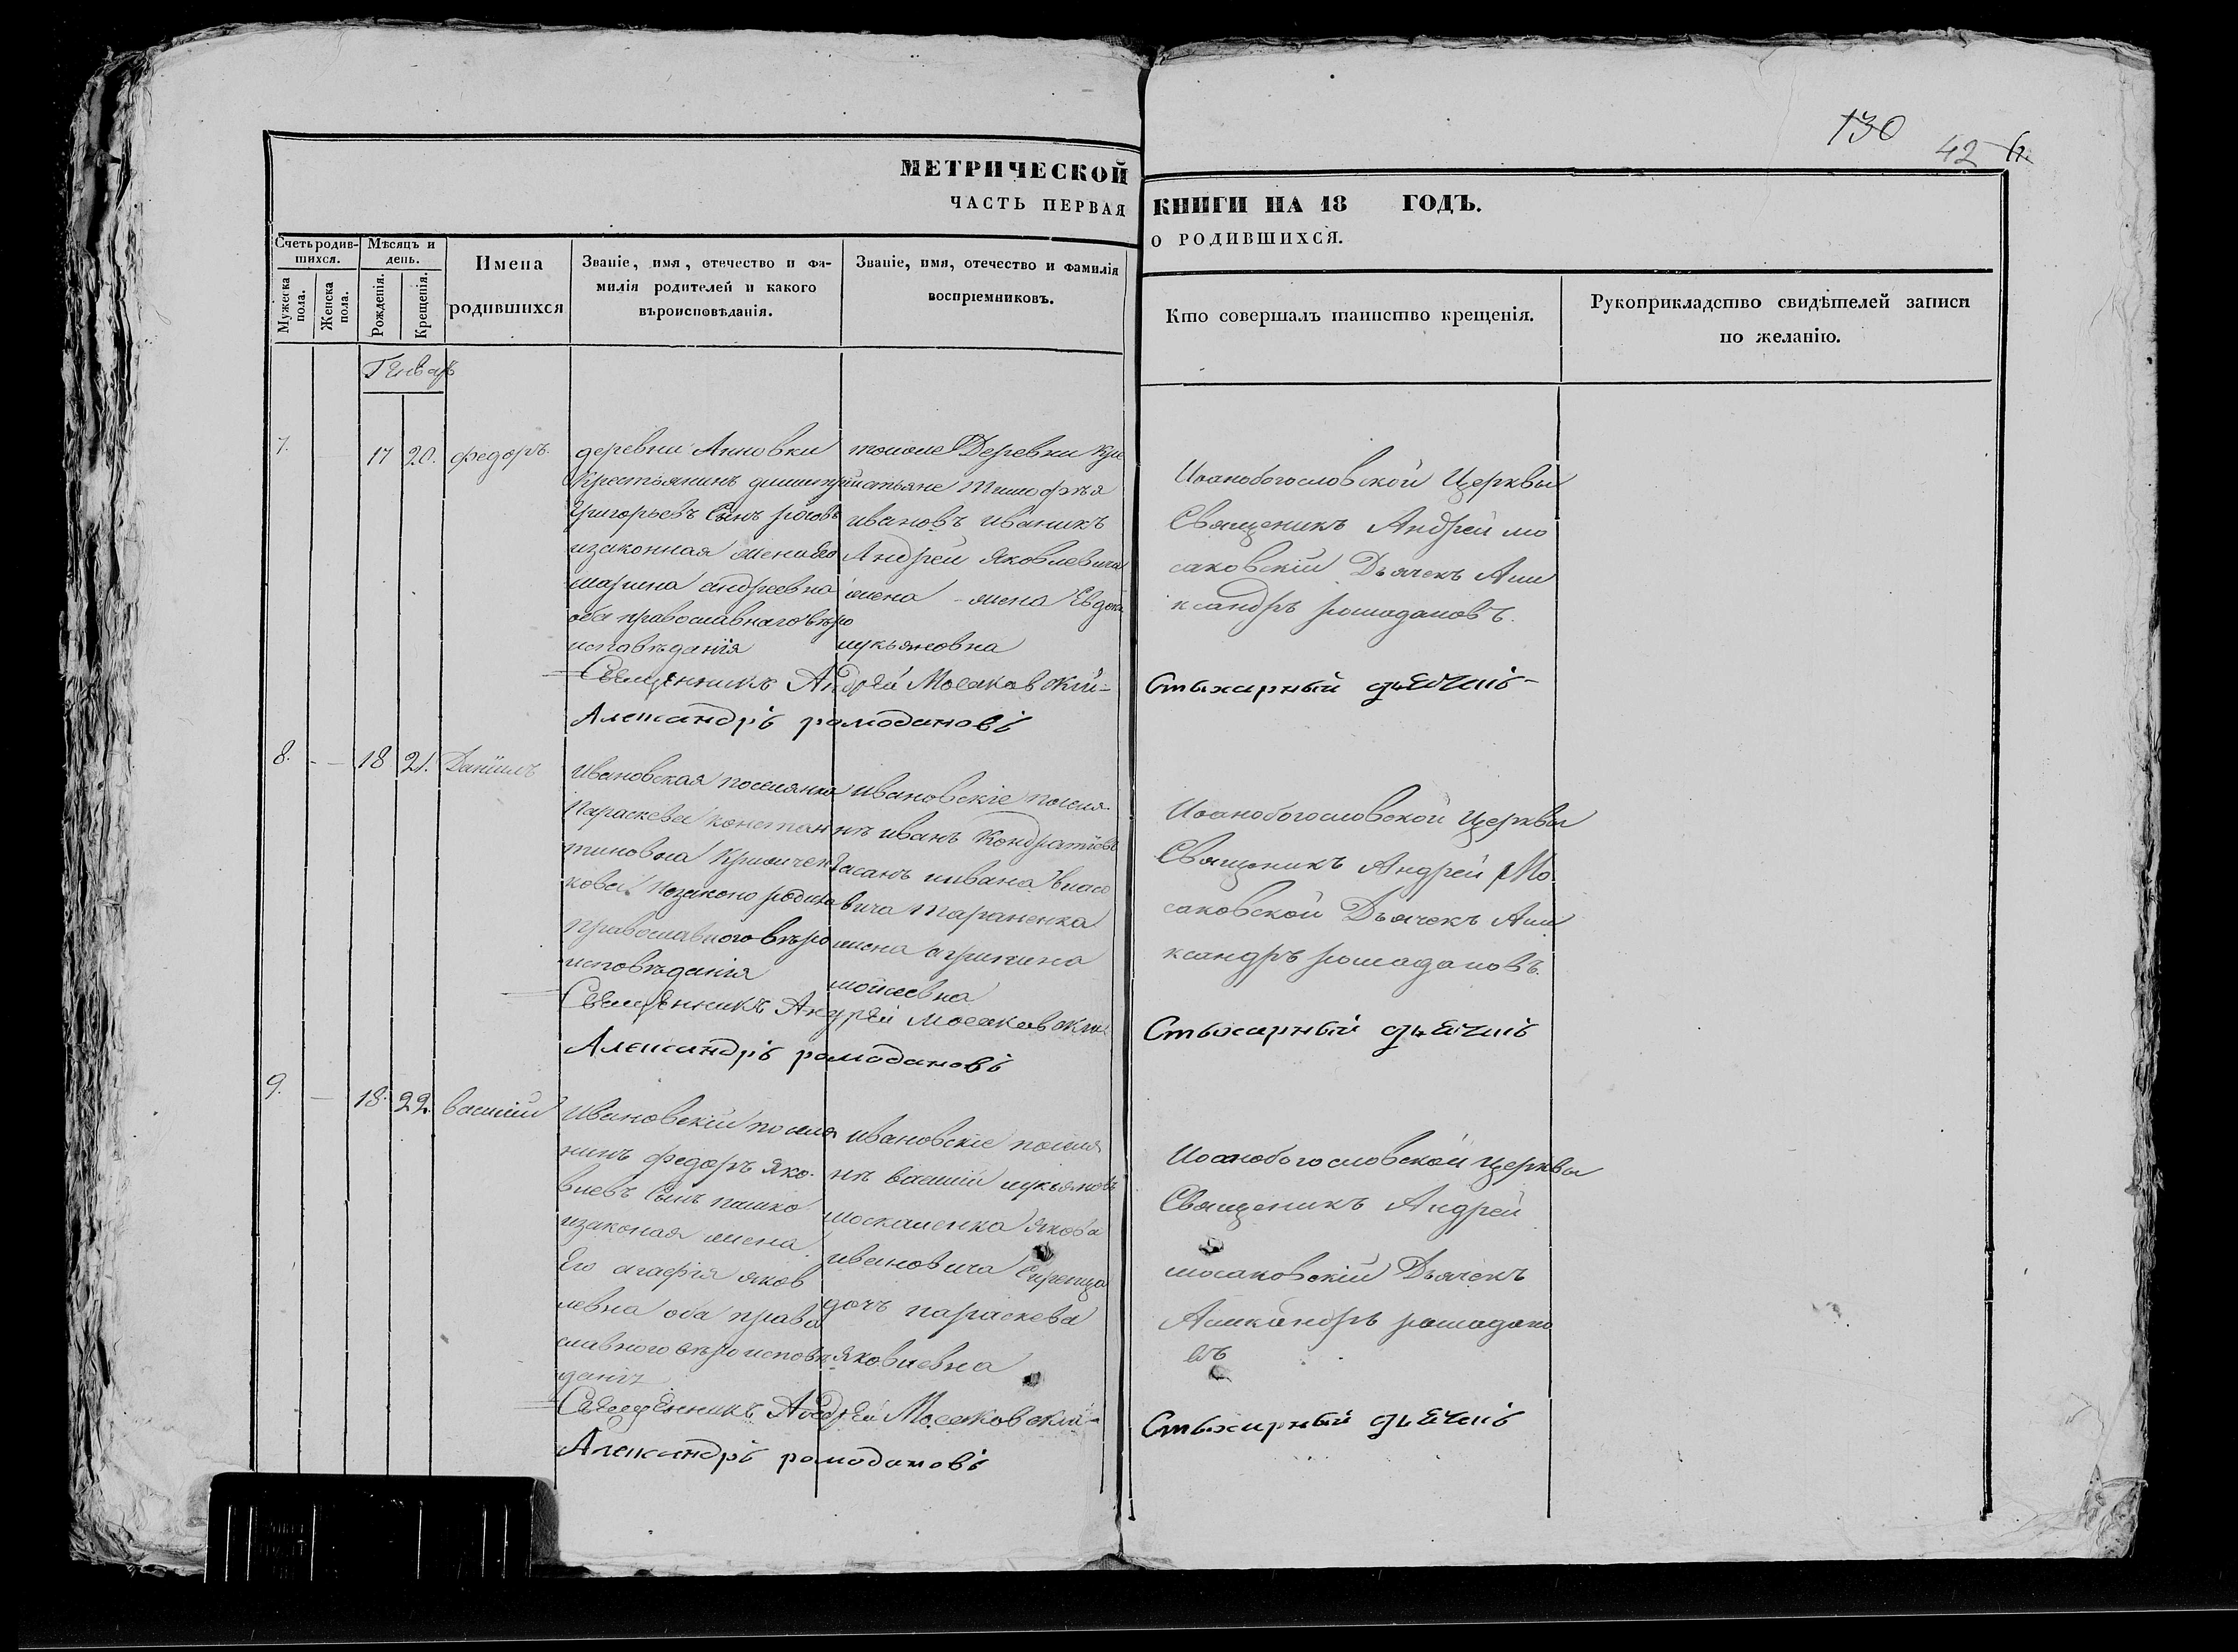 130
42
МЕТРИЧЕСКОЙ
КНИГИ НА 18 ГОДЪ.
ЧАСТЬ ПЕРВАЯ
О РОДИВШИХСЯ.
Счетъ родив-
шихся.
Мужеска
пола.
Женска
пола.
Мѣсяцъ и
день.
Рожденія.
Крещенія.
Имена
родившихся
Званіе, имя, отечество и фа-
милія родителей и какого
вѣроисповѣданія.
Званіе, имя, отечество и фамилія
воспріемниковъ.
Кто совершалъ таинство крещенія.
Рукоприкладство свидѣтелей записи
по желанію.
Генварь
7.
17
20.
федоръ.
деревни Анновки
Крестьянинъ димитрій
Григорьевъ Сынъ
изаконная жена его
марина андреевна
оба православнаго вѣро
исповѣданія
тойже Деревни Кре
стьяне Тимофѣя
ивановъ иваникъ
Андрей Яковлевича
жена Евдокія
лукьяновна
Иоанобогословской Церквы
Священикъ Андрей мо
саковскій Дьячекъ Але
ксандръ ромадановъ.
Священникъ Андрей Мосаковскій
Стыхарный дьячокъ
Александръ ромодановъ
8.
18
21.
Даніилъ
Ивановская поселянка
Параскева констан
тиновна
кова Незаконо родила
Православного вѣро
исповѣданія
ивановскіе поселя
нъ иванъ Кондратіевъ
ивана власо
вича Тараненка
жена агрипина
мойсеевна
Иоанобогословской Церквы
Священикъ Андрей Мо
саковской Дьячекъ Але
ксандръ ромадановъ.
Священникъ Андрей Мосаковскій
Стыхарный дьячокъ
Александръ ромодановъ
9.
18.
22.
василій
Ивановскій поселя
нинъ федоръ Яко
влевъ Сынъ
изаконая жена
Его агафія яков
левна оба право
славного вѣроисповѣ
данія
ивановскіе поселя
нъ василій лукьяновъ
москаленка якова
ивановича
дочь параскева
яковлевна
Иоанобогословской Церквы
Священикъ Андрей
мосаковскій Дьячекъ
Александръ ромадано
въ
Священникъ Андрей Мосаковскій
Стыхарный дьячокъ
Александръ ромодановъ